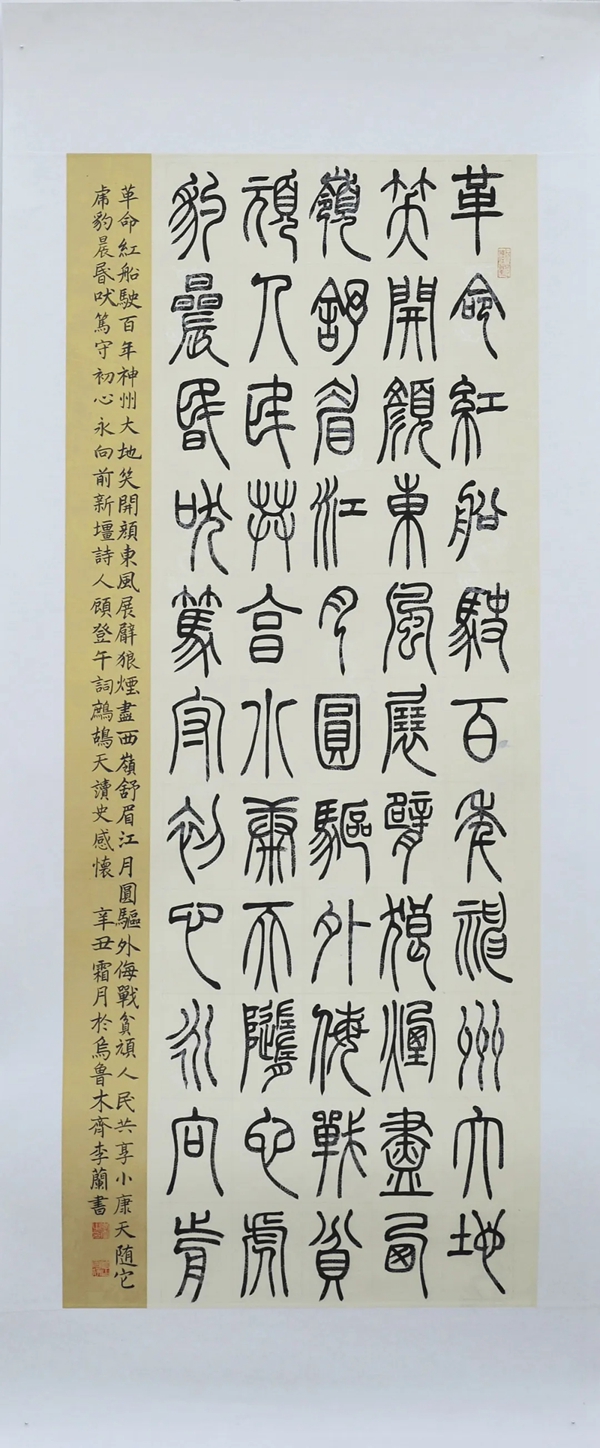 革命紅船駛百年神州大地
笑開顏東風展臂狼煙盡西
嶺舒眉江月圓驅外侮戰貧
頑人民共享小康天隨它虎
豹晨昏吠篤守初心永向前
革命紅船駛百年神州大地笑開顏東風展臂狼煙盡西嶺舒眉江月圓驅外侮戰貧頑人民共享小康天随它
虎豹晨昬吠篤守初心永向前新疆詩人顧登午詞鷓鴣天讀史感懷 辛丑霜月於烏魯木齊李蘭書